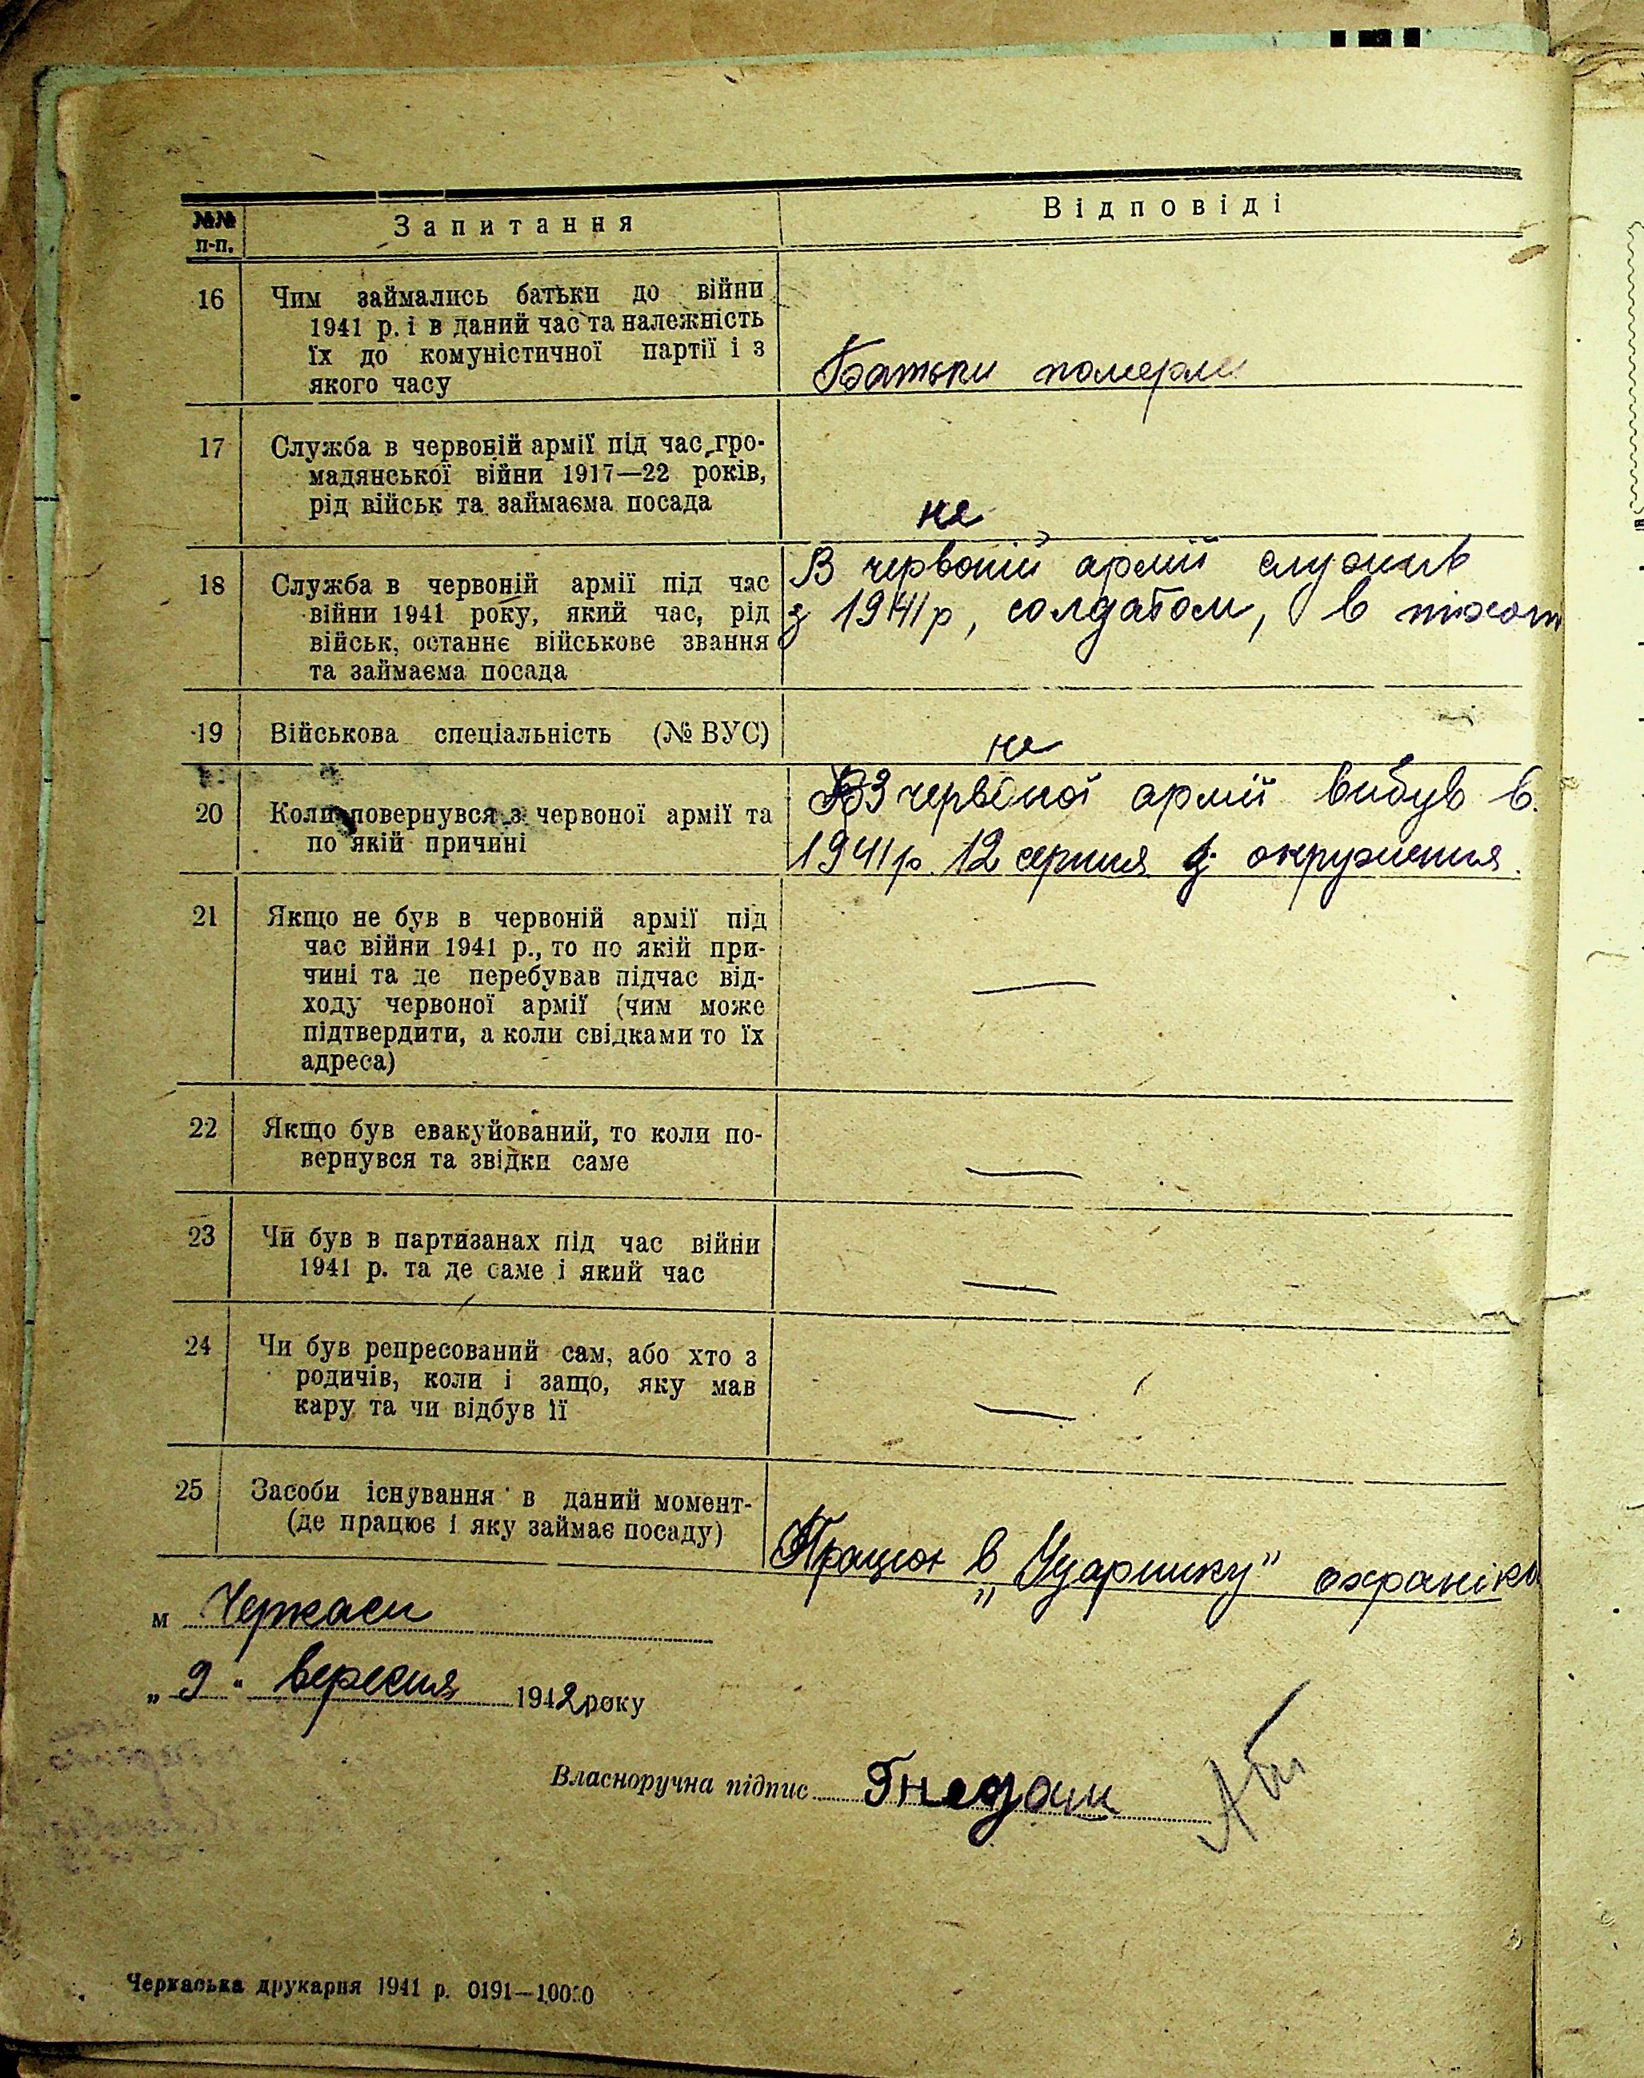 №№ п-п.
Запитання
Відповіді
16
Чим займались батьки до війни
1941 р. і в даний час та належність
їх до комуністичної партії і з
якого часу
Батьки померли
17
Служба в червоній армії під час гро-
мадянської війни 1917—22 років,
рід військ та займаєма посада
не
18
Служба в червоній армії під час
війни 1941 року, який час, рід
військ, останнє військове звання
та займаєма посада
В червоній армії служив
з 1941 р, солдатом, в піхот
19
Військова спеціальність (№ ВУС)
не
20
Коли повернувся з червоної армії та
по якій причині
З червоної армії вибув в
1941 р. 12 серпня з окруження.
21
Якщо не був в червоній армії під
час війни 1941 р., то по якій при-
чині та де перебував підчас від-
ходу червоної армії (чим може
підтвердити, а коли свідками то їх
адреса)
—
22
Якщо був евакуйований, то коли по-
вернувся та звідки саме
—
23
Чи був в партизанах під час війни
1941 р. та де саме і який час
—
24
Чи був репресований сам, або хто з
родичів, коли і защо, яку мав
кару та чи відбув її
—
25
Засоби існування в даний момент-
(де працює і яку займає посаду)
Працює в „Ударнику" охраніко
м Черкаси
„ 9 " вересня 1942 року
Власноручна підпис Гнедаш
Черкаська друкарня 1941 р. 0191—10000